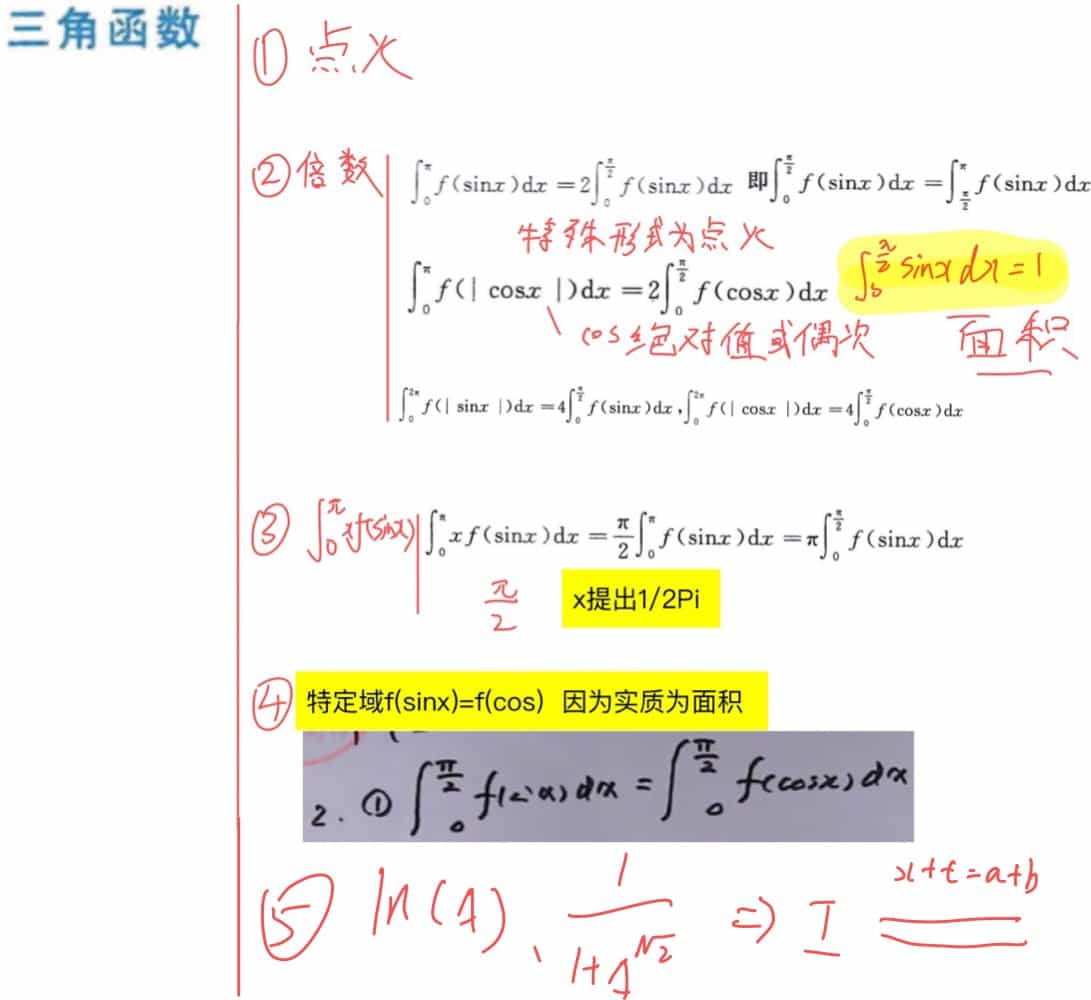 三角函数
① 点火
② 倍数
∫₀^π f(sinx)dx = 2∫₀^{π/2} f(sinx)dx 即∫₀^{π/2} f(sinx)dx = ∫_{π/2}^π f(sinx)dx
特殊形式为点火
∫₀^π f(| cosx |)dx = 2∫₀^{π/2} f(cosx)dx
∫₀^{π/2} sinx dx = 1
cos绝对值或偶次
面积
∫₀^{2π} f(| sinx |)dx = 4∫₀^{π/2} f(sinx)dx, ∫₀^{2π} f(| cosx |)dx = 4∫₀^{π/2} f(cosx)dx
③ ∫₀^π xf(sinx)
∫₀^π xf(sinx)dx = π/2 ∫₀^π f(sinx)dx = π∫₀^{π/2} f(sinx)dx
π/2
x提出1/2Pi
④ 特定域f(sinx)=f(cos) 因为实质为面积
2. ① ∫₀^{π/2} f(sinx)dx = ∫₀^{π/2} f(cosx)dx
⑤ ln(A)、1/(1+A^{√2}) ⇒ I
x+t=a+b